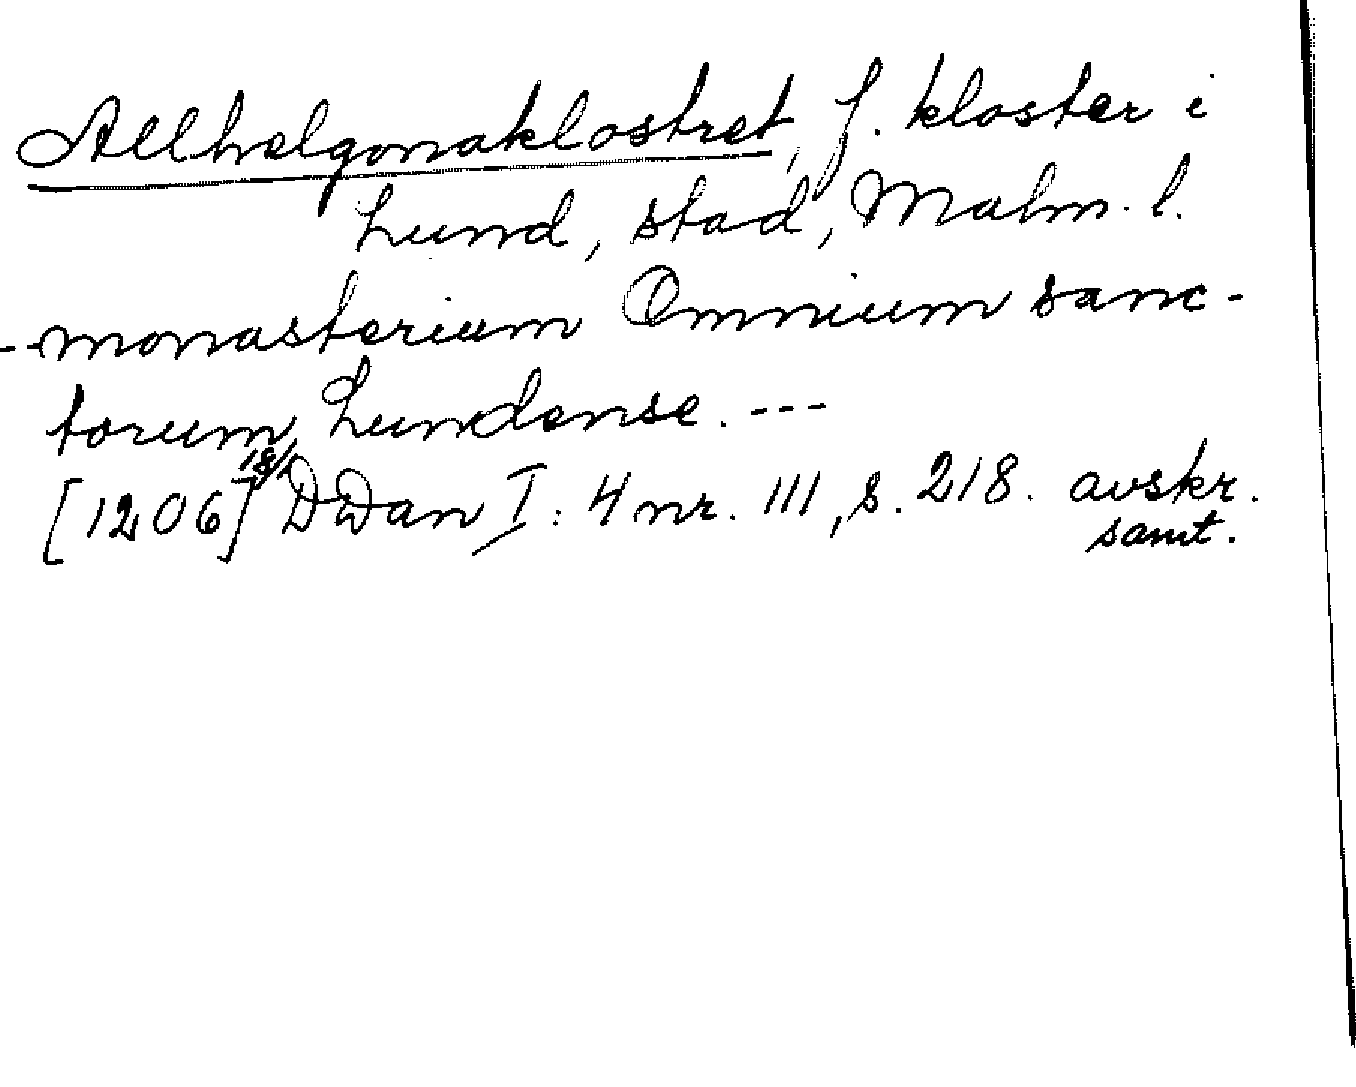 Allhelgonaklostret, f. kloster i
Lund, stad, Malm. l.
--monasterium Omnium sanc-
torum Lundense. ---
[1206] 18/1 DDan I: 4 nr. 111, s. 218. avskr.
samt.